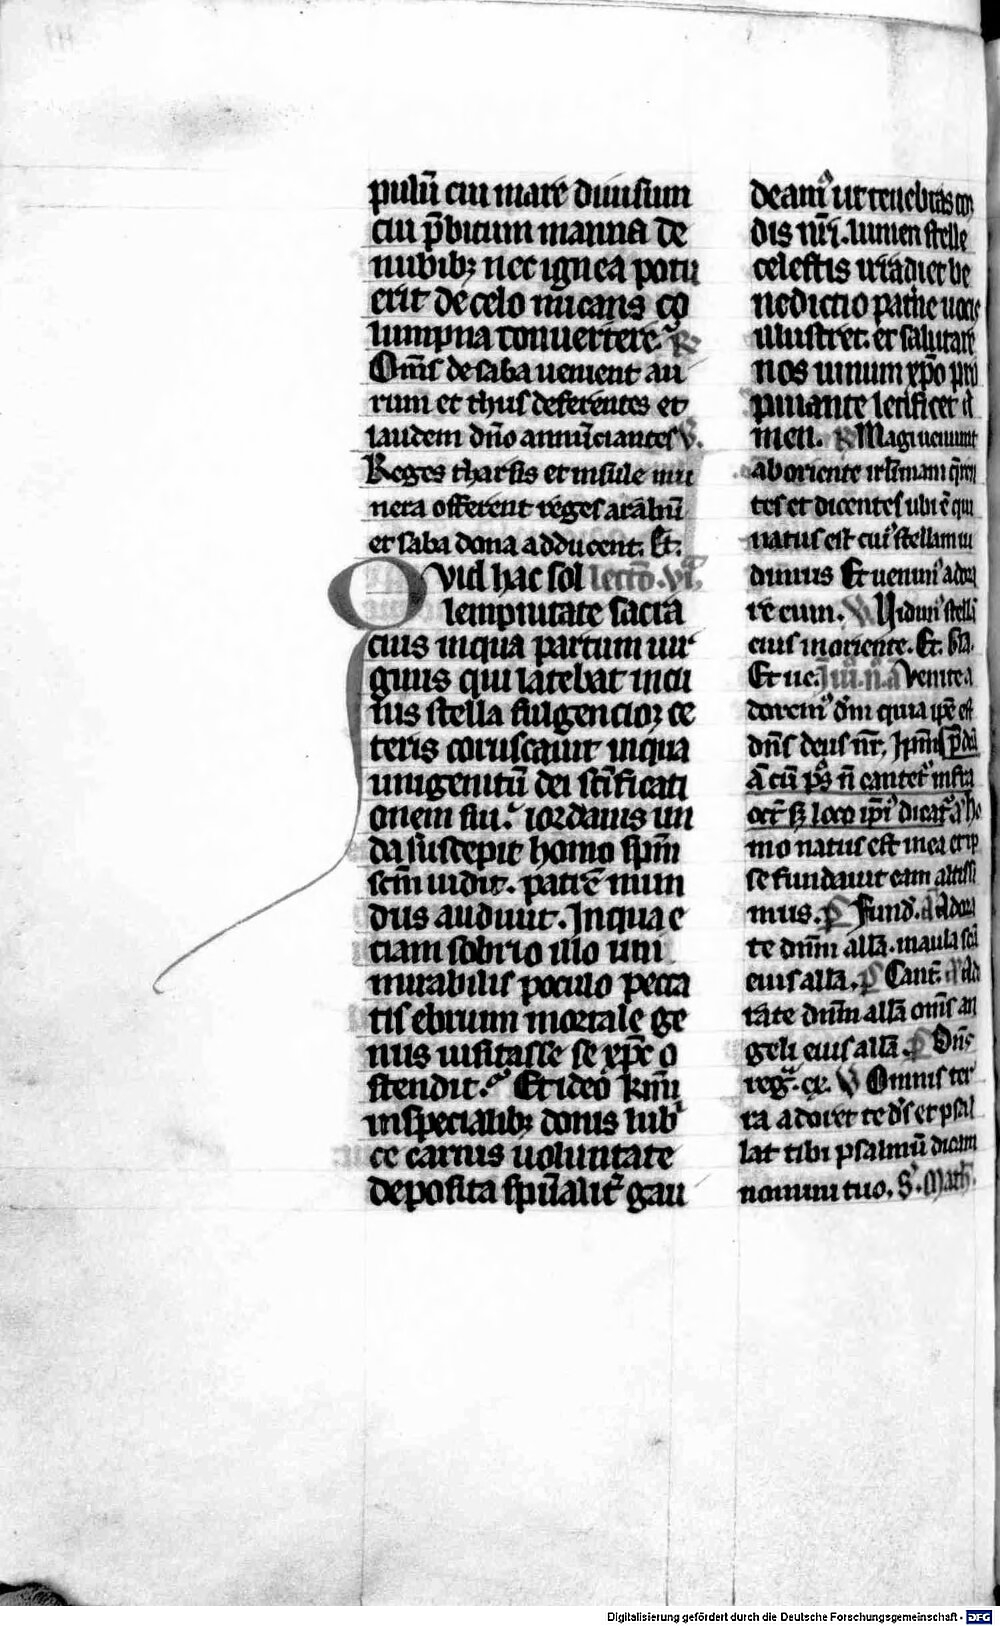 pulū cui mare diuisum
cui p̄bitum manna de
nubibꝫ nec ignea potu
erit de celo micans co
lumpna conuertere. ℟
Om̄s de saba uenient au
rum et thus deferentes et
laudem dn̄o annūciantes ℣.
Reges tharsis et insule mu
nera offerent reges arabū
et saba dona adducent. Et.
Quid hac sol lectō. vi.
lempnitate sacra
cius inqua partum uir
ginis qui latebat incu
nis stella fulgencior ce
teris coruscauit inqua
unigenitū dei sc̄ificati
onem flui. iordanis un
da suscepit homo sp̄m
sc̄m uidit. patrē mun
dus audiuit. Inqua e
ciam sobrio illo uini
mirabilis poculo pecca
tis ebrium mortale ge
nus uisitasse se xp̄c o
stendit. Et ideo km̄i
inspecialibꝫ donis lub
ce carnis uoluntate
deposita sp̄ualit̄ gau
deam᷒ ut tenebras cor
dis nr̄i. lumen stelle
celestis irradiet be
nedictio pat̄ne uocis
illustret. et salutare
nos uinum xp̄o pro
pinante letificet a
men. ℟ Magi ueniunt
ab oriente irl̄imam q̄ren
tes et dicentes ubi ē qui
natus est cui᷒ stellam ui
dimus Et uenim᷒ adora
re eum. ℣ Vidim᷒ stellā
eius in oriente. Et. Gl̄a.
Et ue. Venite a
dorem᷒ d̄m quia ip̄e est
dn̄s deus nr̄,
ā cū ps̄ n̄ cantet᷒ infra
oct̄ sꝫ loco ip̄i᷒ dicat᷒ a᷒ ho
mo natus est in ea et ip
se fundauit eam altissi
mus. p̄ Fund. A Adora
te dn̄m all̄a. in aula scā
eius all̄a. p̄ Cant̄. A Ad
rate dn̄m all̄a om̄s an
geli eius all̄a. p̄ Dn̄s
reg̅. ex. ℣ Omnis ter
ra adoret te d̄s et psal
lat tibi psalmū dicam
nomini tuo. S. Math.